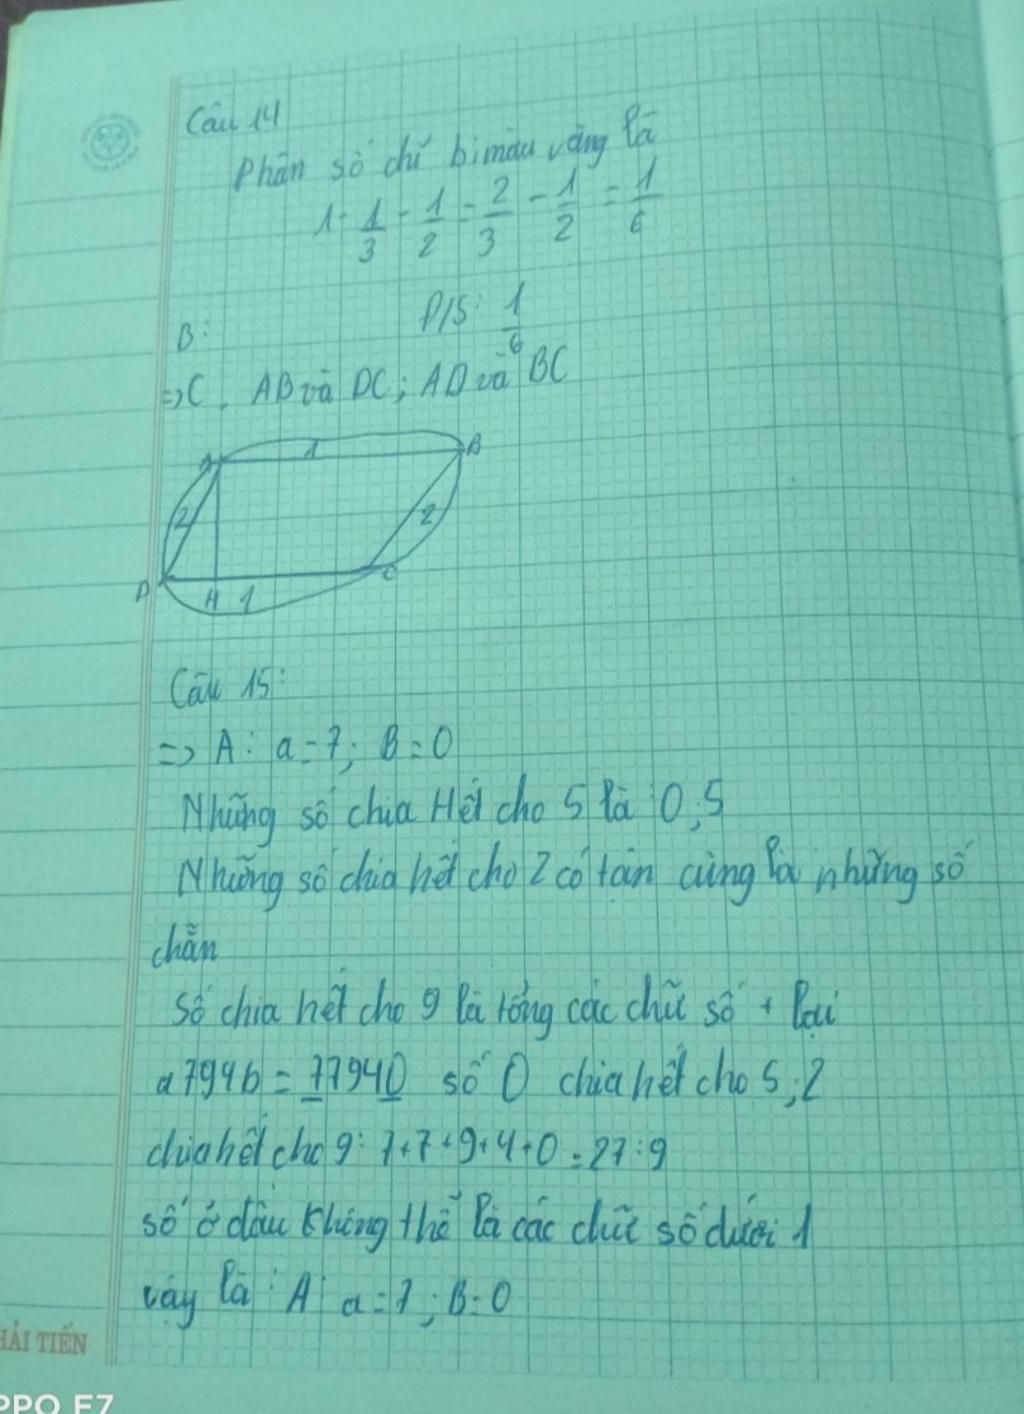 Câu 14
Phân số chỉ bi màu vàng là
1 - 1/3 - 1/2 = 2/3 - 1/2 = 1/6
Đ/S: 1/6
B:
=> C. AB và DC; AD và BC
A 1 B
2 2
D H 1 C
Câu 15:
=> A: a = 7; B = 0
Những số chia Hết cho 5 là 0;5
Những số chia hết cho 2 có tân cùng là những số
chẵn
Số chia hết cho 9 là tổng các chữ số + lại
a794b = 77940 số 0 chia hết cho 5;2
chia hết cho 9: 7+7+9+4+0=27:9
số ở đầu không thể là các chữ số dưới 1
vậy là: A: a = 7; B = 0
HẢI TIẾN
PPO F7